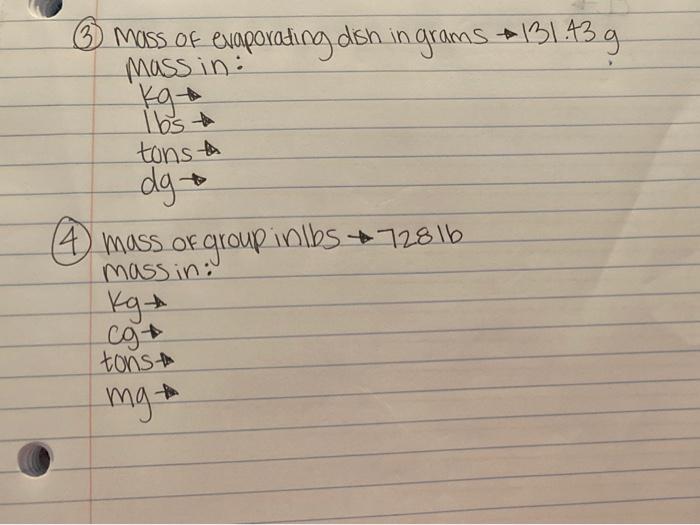 ③ Mass of evaporating dish in grams → 131.43 g
Mass in:
kg →
lbs →
tons →
dg →
④ mass of group in lbs → 728 lb
mass in:
kg →
cg →
tons →
mg →